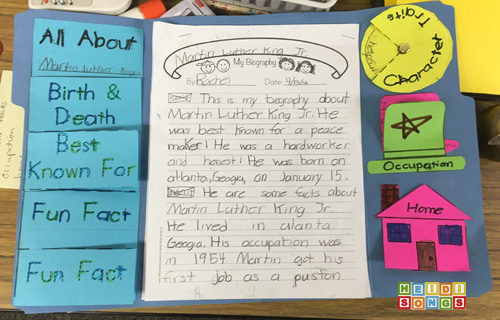 All About
Martin Luther King
Birth &
Death
Best
Known For
Fun Fact
Fun Fact
Martin Luther King Jr.
My Biography
By: Rachel Date:
This is my biography about
Martin Luther King Jr. He
was best known for a peace
maker! He was a hardworker
and honest! He was born on
atlanta, Geogia, on January 15.
He are some facts about
Martin Luther King Jr.
He lived in atlanta
Geogia. His occupation was
in 1954 Martin got his
first job as a puston
Character
Traits
Occupation
Home
HEIDI
SONGS